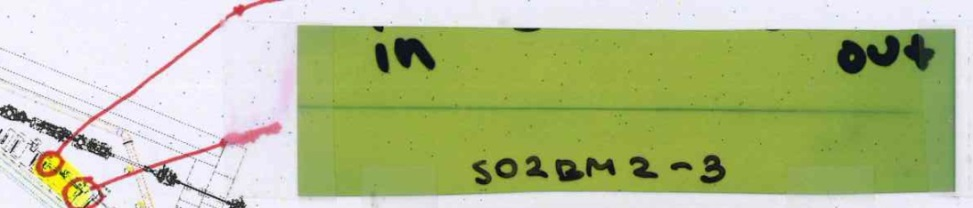 in out
S02BM2-3